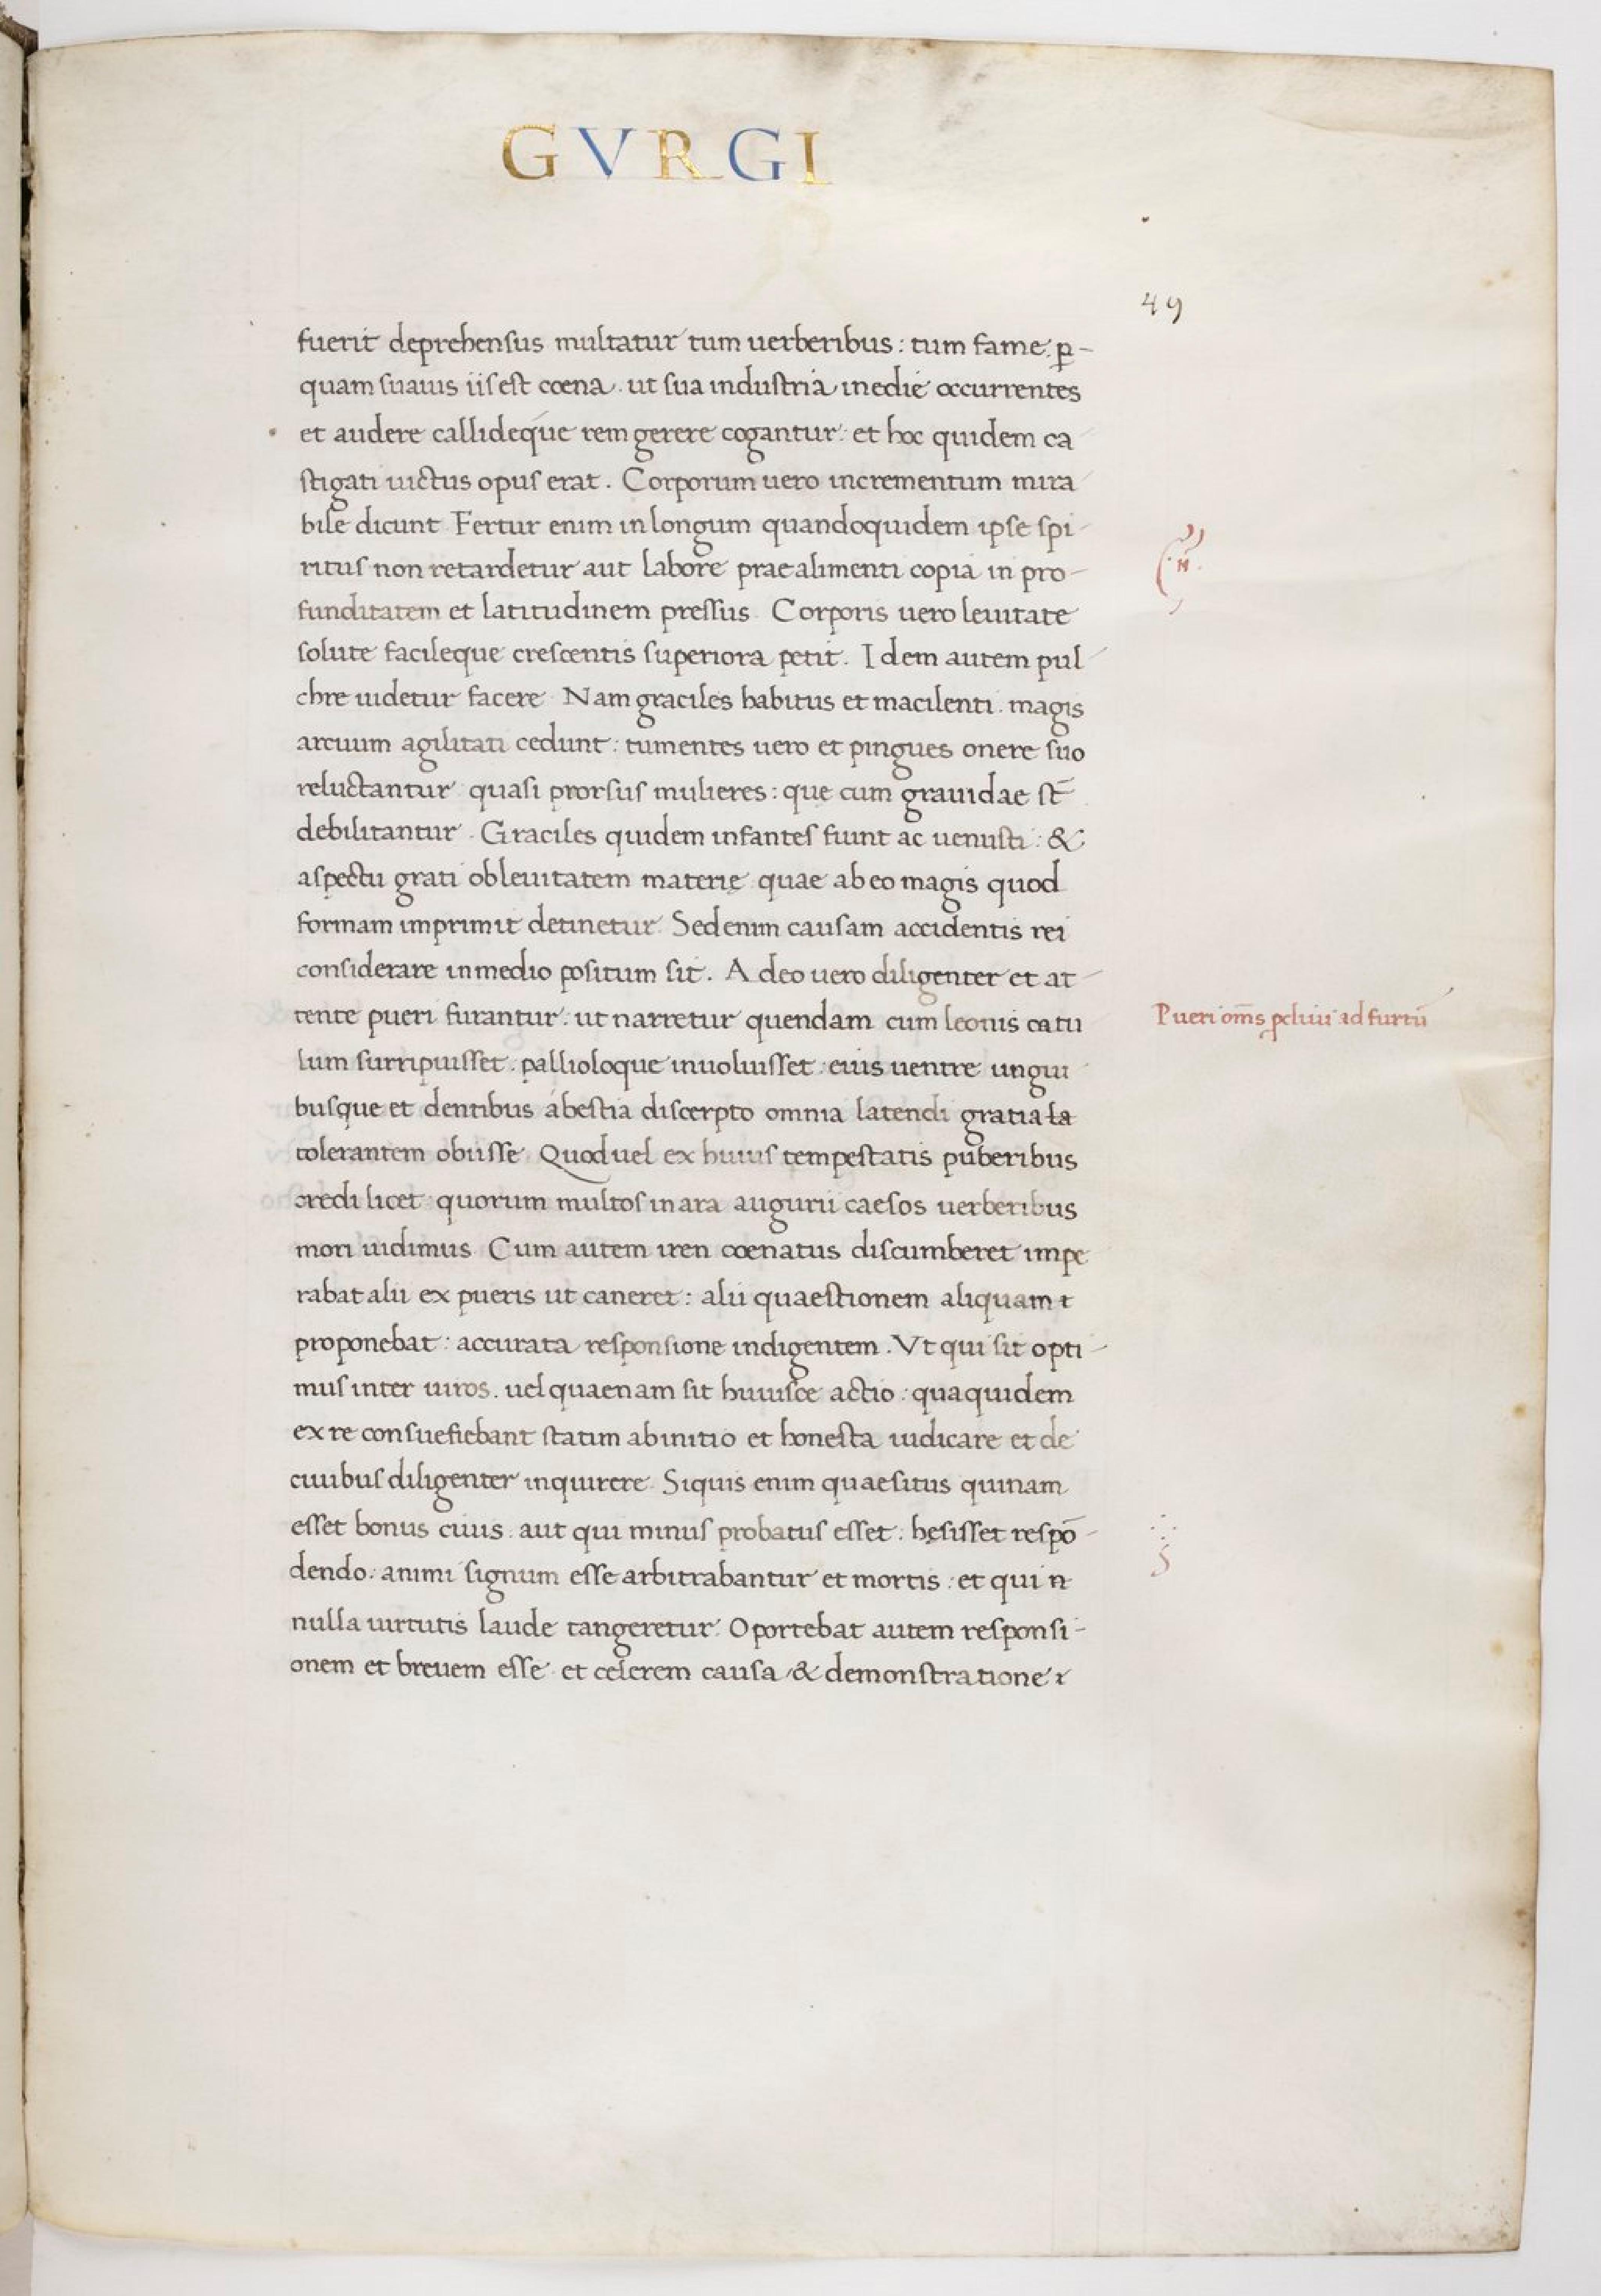 GVRGI
49
fuerit deprehensus multatur tum uerberibus : tum fame. p̱ -
quam suauis iis est coena . ut sua industria inedie occurrentes
et audere callideque rem gerere cogantur : et hoc quidem ca
stigati uictus opus erat . Corporum uero incrementum mira
bile dicunt Fertur enim in longum quandoquidem ipse spi
ritus non retardetur aut labore prae alimenti copia in pro -
funditatem et latitudinem pressus . Corporis uero leuitate
solute facileque crescentis superiora petit . Idem autem pul
chre uidetur facere . Nam graciles habitus et macilenti . magis
arcuum agilitati cedunt : tumentes uero et pingues onere suo
reluctantur quasi prorsus mulieres : que cum grauidae st̄
debilitantur . Graciles quidem infantes fiunt ac uenusti : &
aspectu grati ob leuitatem materię quae ab eo magis quod
formam imprimit detinetur . Sed enim causam accidentis rei
considerare in medio positum sit . Adeo uero diligenter et at -
tente pueri furantur : ut narretur quendam cum leonis catu
Pueri om̄s pcliui ad furtū
lum surripuisset . pallioloque inuoluisset : eius uentre ungui
busque et dentibus a bestia discerpto omnia latendi gratia ta
tolerantem obiisse . Quod uel ex huius tempestatis puberibus
credi licet : quorum multos in ara augurii caesos uerberibus
mori uidimus Cum autem iren coenatus discumberet impe
rabat alii ex pueris ut caneret : alii quaestionem aliquam
proponebat : accurata responsione indigentem . Vt qui sit opti -
mus inter uiros . uel quaenam sit huiusce actio : qua quidem
ex re consuefiebant statim ab initio et honesta iudicare et de
ciuibus diligenter inquirere . Siquis enim quaesitus quinam
esset bonus ciuis . aut qui minus probatus esset : hęsisset respō -
dendo : animi signum esse arbitrabantur et mortis : et qui n
nulla uirtutis laude tangeretur . Oportebat autem responsi -
onem et breuem esse et celerem causa & demonstratione